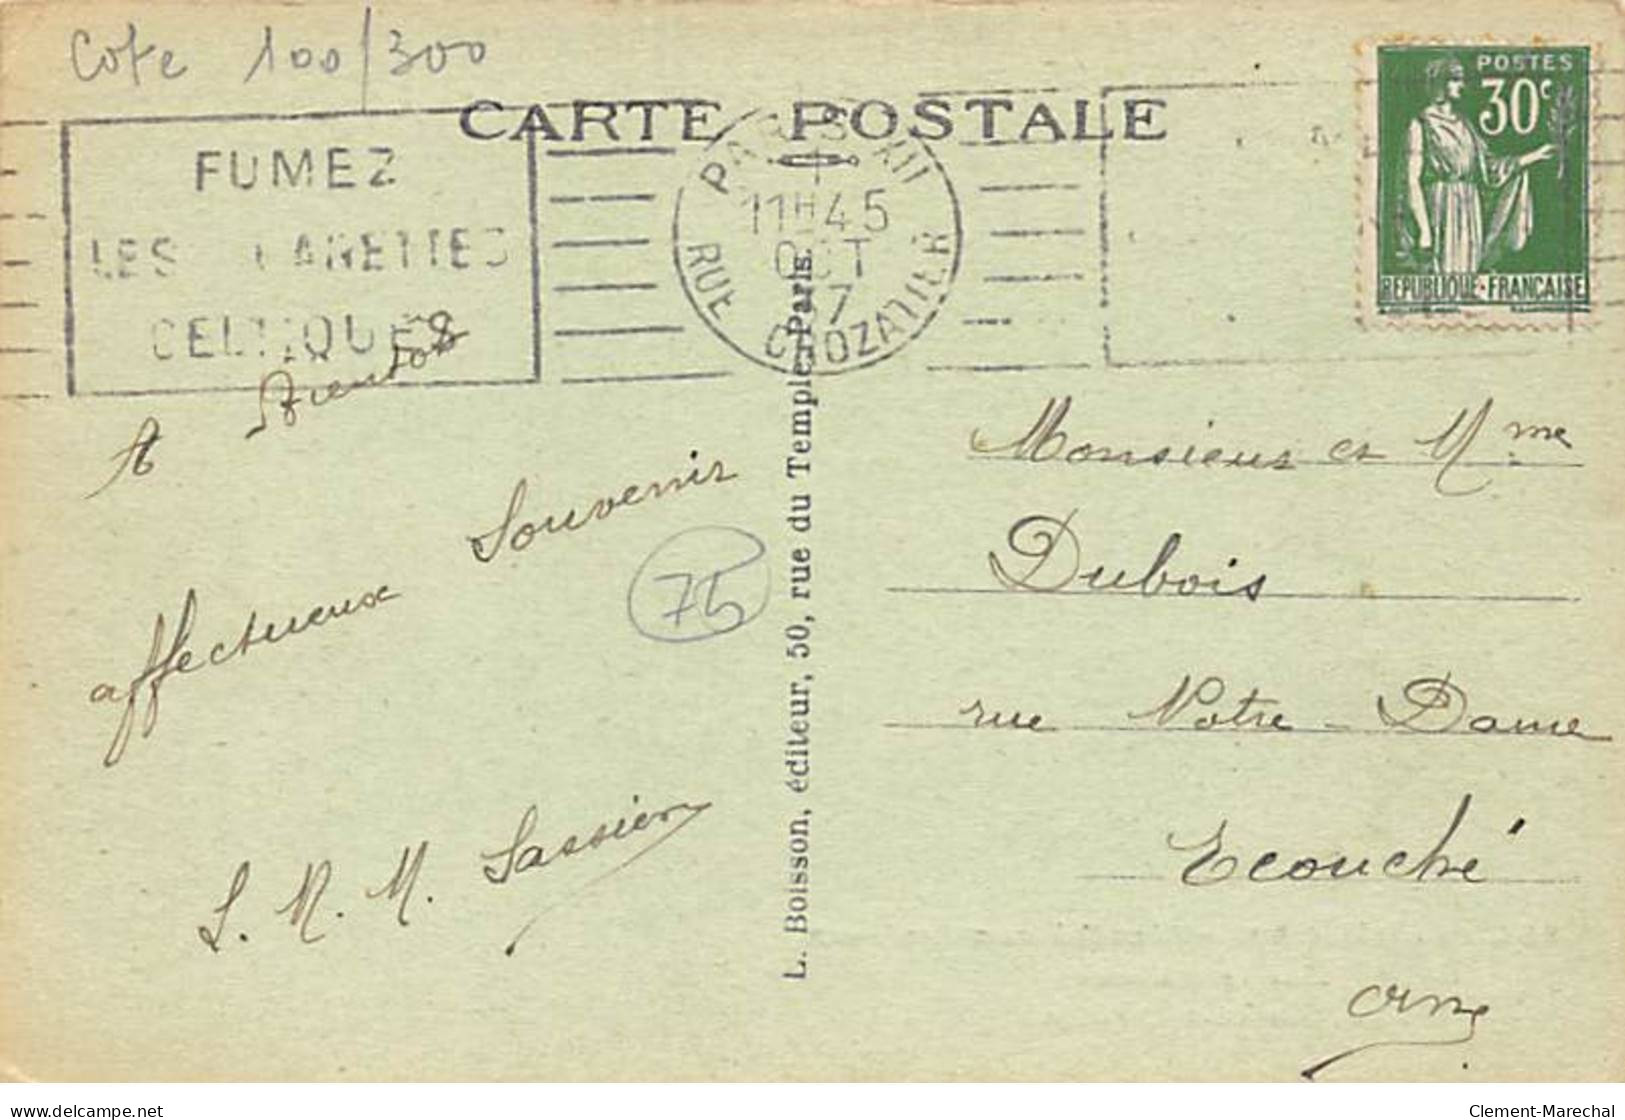 Cote 100/300
CARTE POSTALE
POSTES
30c
REPUBLIQUE FRANÇAISE
FUMEZ
LES
CELTIQUES
PARIS XII
11H45
OCT
RUE CROZATIER
A Bientôt
affectueux Souvenir
75
S. R. M. Sassier
L. Boisson, éditeur, 50, rue du Temple, Paris.
Monsieur et Mme
Dubois
rue Notre-Dame
Ecouché
Orne
www.delcampe.net
Clement-Marechal